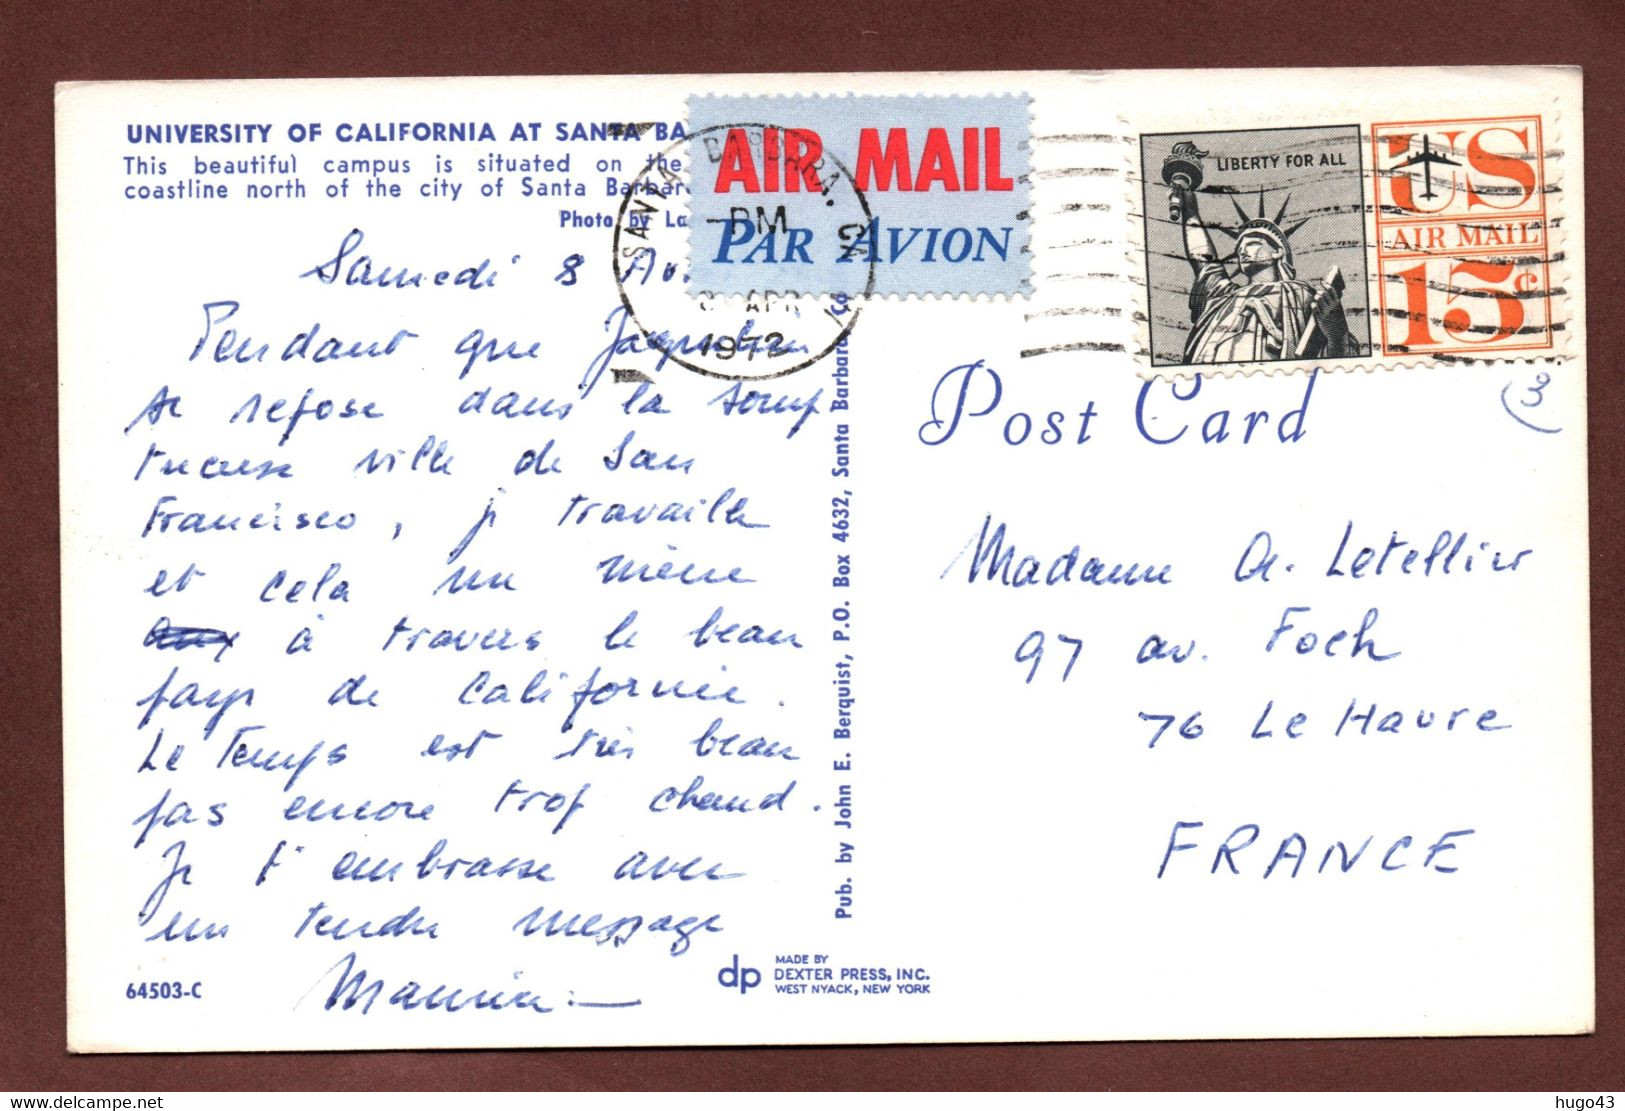 UNIVERSITY OF CALIFORNIA AT SANTA BA
This beautiful campus is situated on the
coastline north of the city of Santa Barbar
Photo by La
Samedi 8 Av
Pendant que Jaqueline
se repose dans la somp
tueuse ville de San
Francisco, je travaille
et cela me mène
à travers le beau
pays de Californie.
Le Temps est très beau
pas encore trop chaud.
Je t'embrasse avec
un tendre message
Maurice
64503-C
Pub. by John E. Berquist, P.O. Box 4632, Santa Barbara, Ca
dp
MADE BY
DEXTER PRESS, INC.
WEST NYACK, NEW YORK
AIR MAIL
PAR AVION
SANTA BARBARA, CA
PM
8 APR
1972
LIBERTY FOR ALL
US
AIR MAIL
15¢
3
Post Card
Madame A. Letellier
97 av. Foch
76 Le Havre
FRANCE
http://www.delcampe.net
hugo43